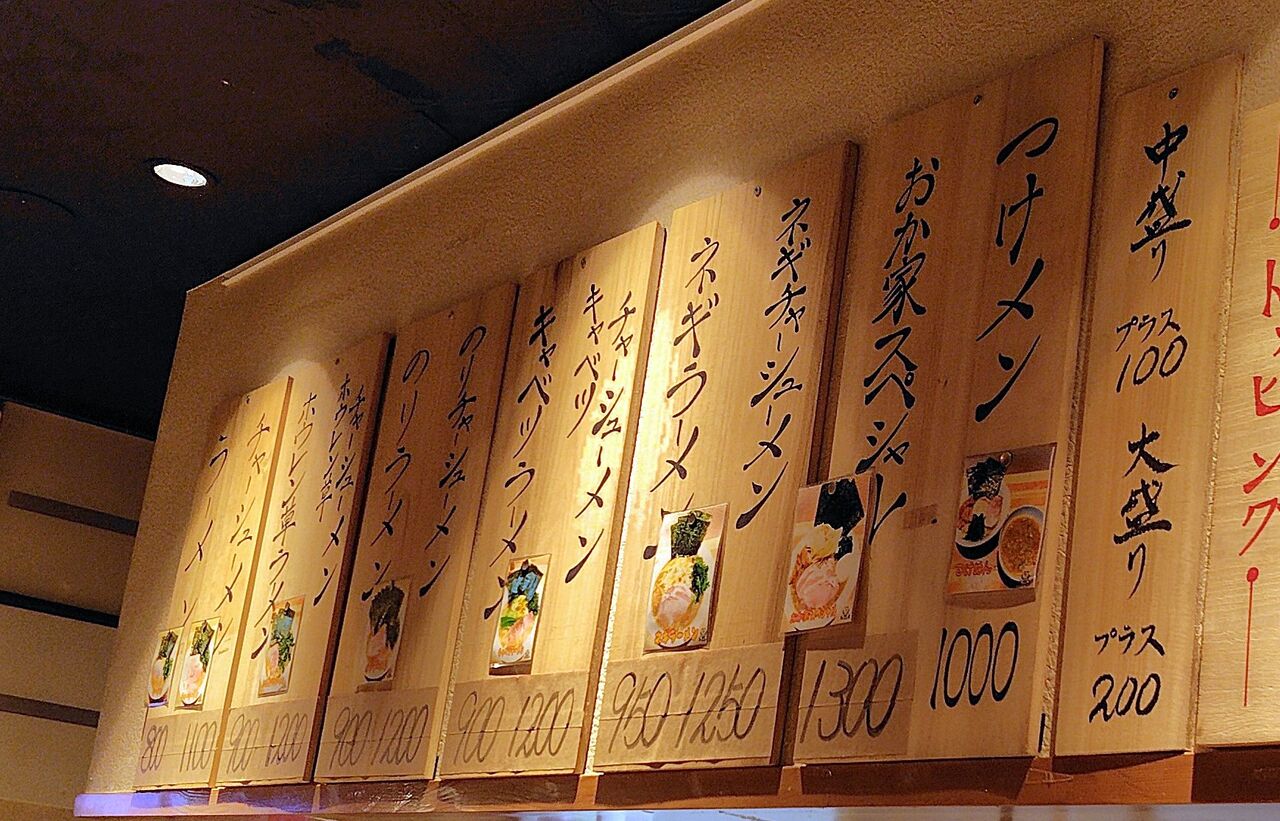 トッピング
中盛り
プラス
100
大盛り
プラス
200
つけメン
1000
おか家スペシャル
1300
ネギチャーシューメン
1250
ネギラーメン
950
チャーシューメン
キャベツ
1200
キャベツラーメン
900
のりチャーシューメン
1200
のりラーメン
900
チャーシューメン
ホウレン草
1200
ホウレン草ラーメン
900
チャーシューメン
1100
ラーメン
800